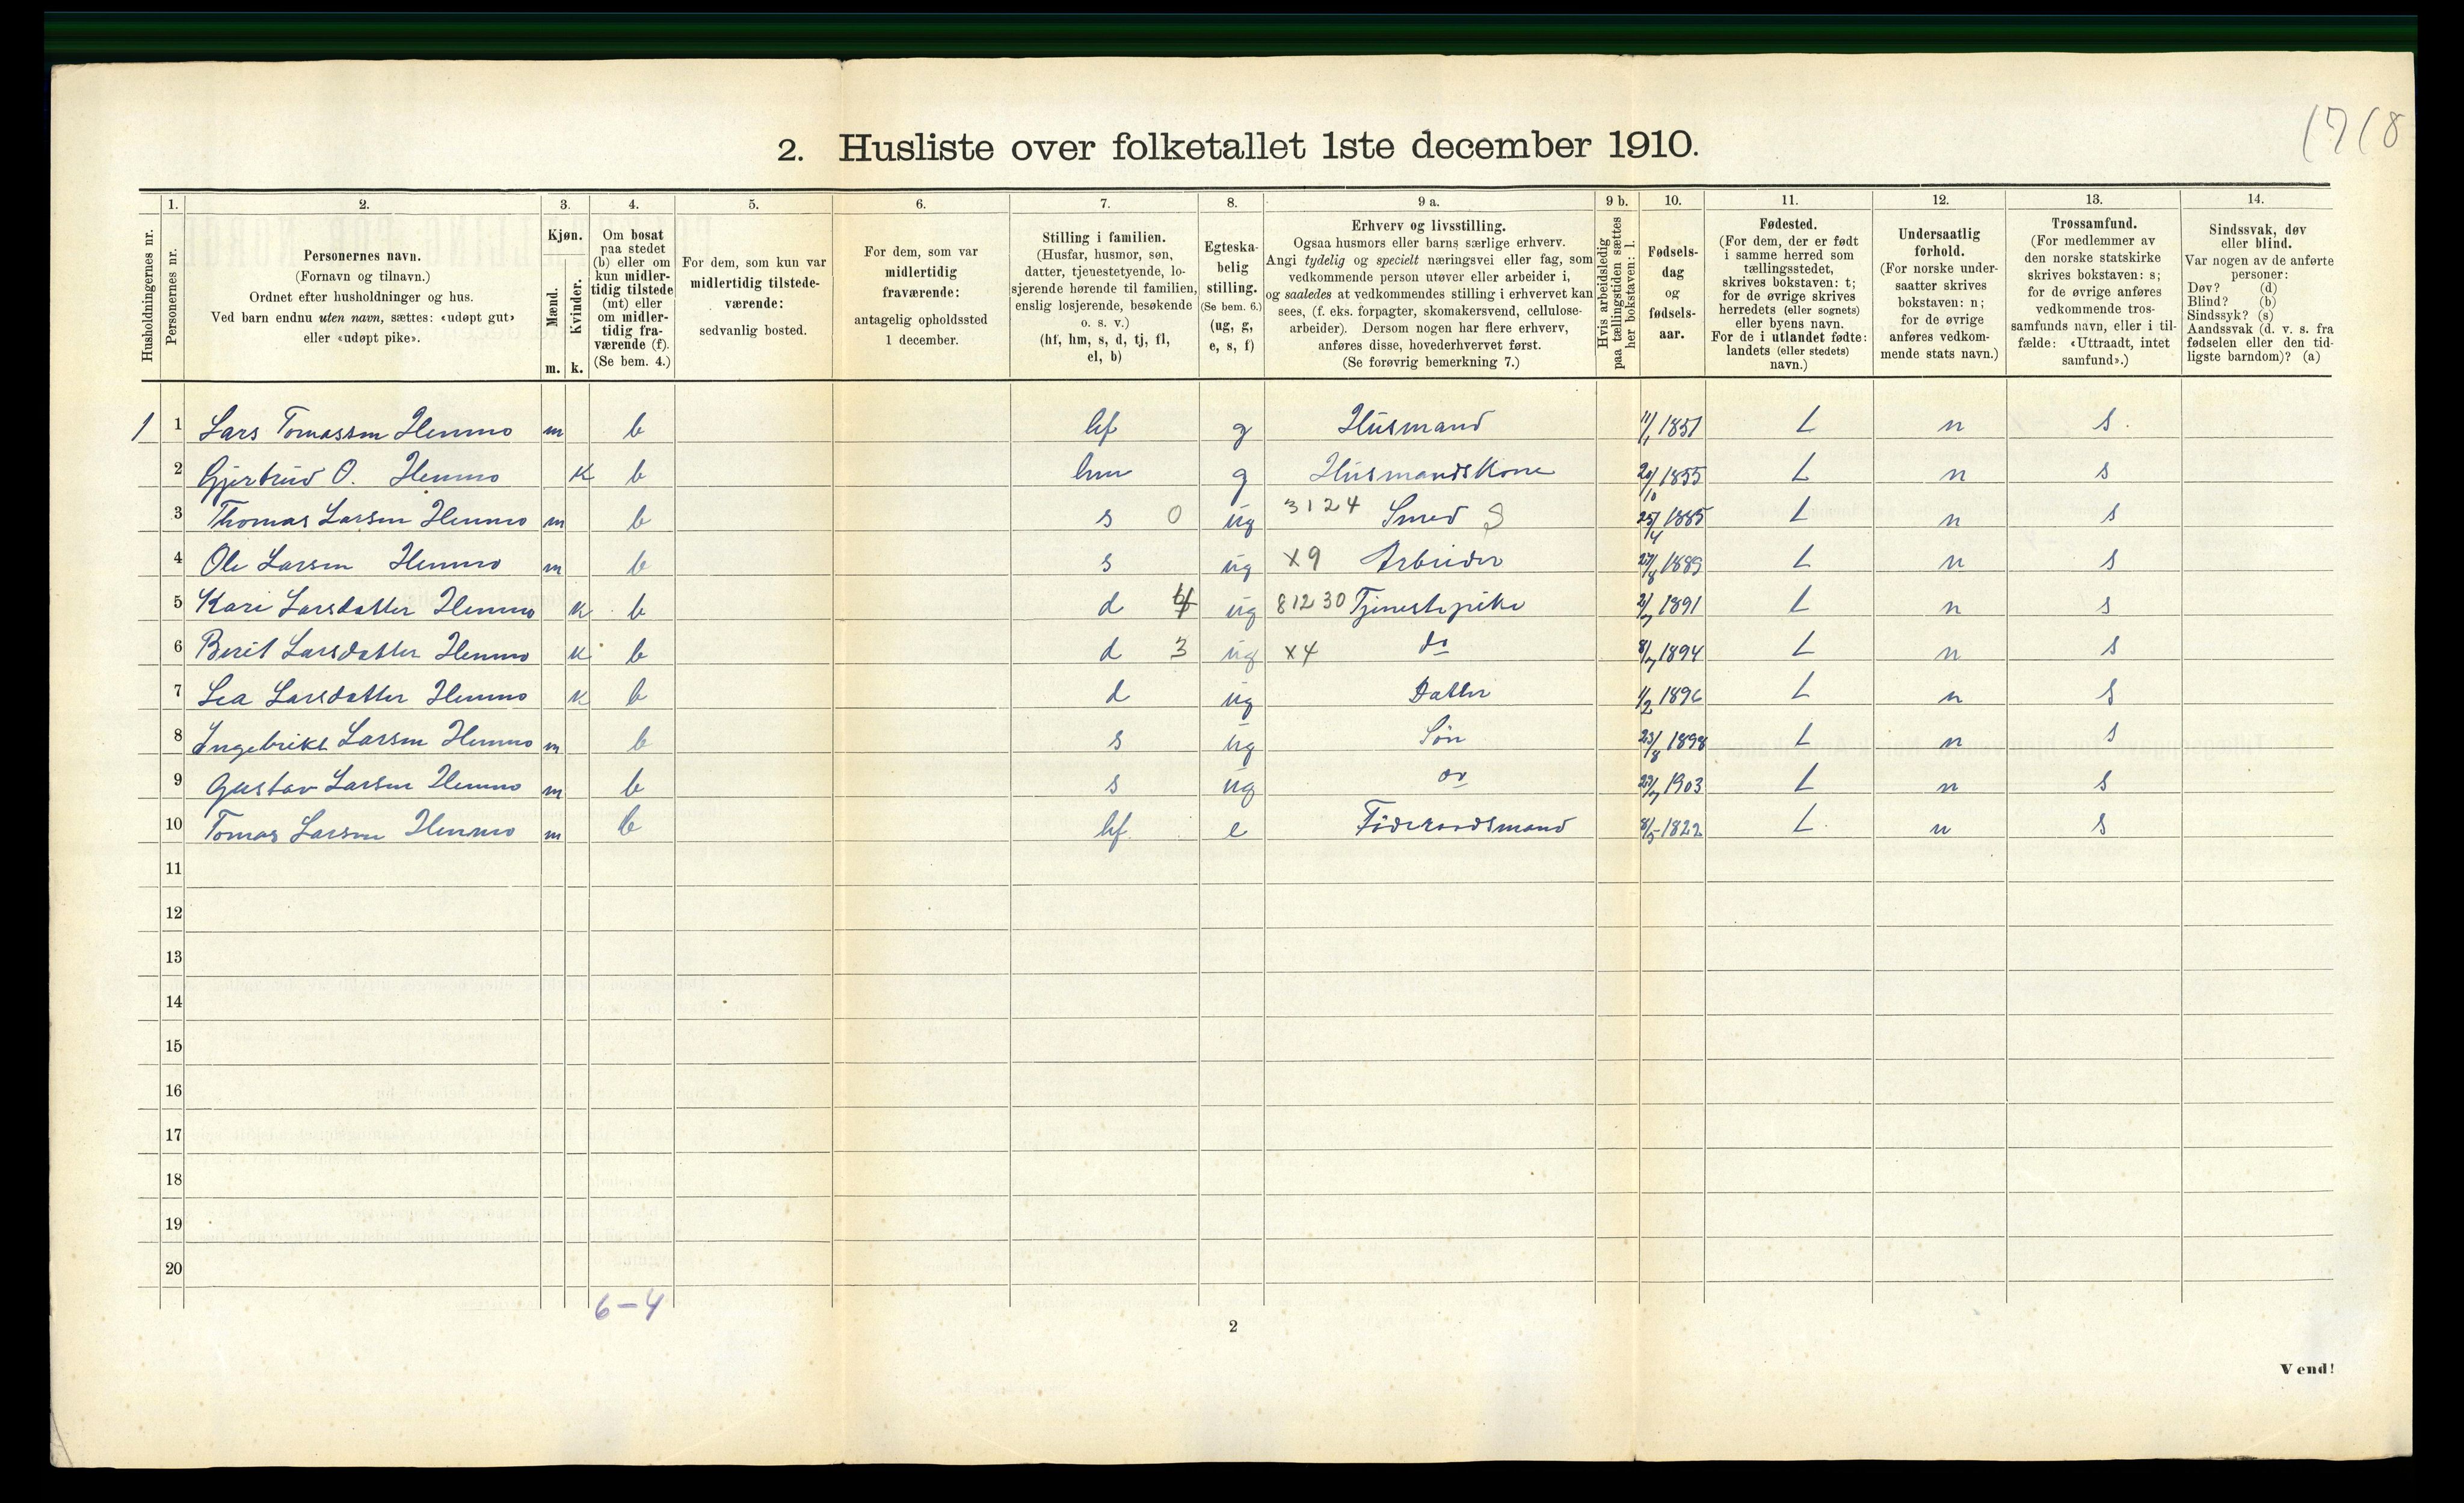 2. Husliste over folketallet 1ste december 1910.
Husholdningernes nr.
1.
Personernes nr.
2.
Personernes navn.
(Fornavn og tilnavn.)
Ordnet efter husholdninger og hus.
Ved barn endnu uten navn, sættes: «udøpt gut»
eller «udøpt pike».
3.
Kjøn.
Mænd.
Kvinder.
m. k.
4.
Om bosat
paa stedet
(b) eller om
kun midler-
tidig tilstede
(mt) eller
om midler-
tidig fra-
værende (f).
(Se bem. 4.)
5.
For dem, som kun var
midlertidig tilstede-
værende:
sedvanlig bosted.
6.
For dem, som var
midlertidig
fraværende:
antagelig opholdssted
1 december.
7.
Stilling i familien.
(Husfar, husmor, søn,
datter, tjenestetyende, lo-
sjerende hørende til familien,
enslig losjerende, besøkende
o. s. v.)
(hf, hm, s, d, tj, fl,
el, b)
8.
Egteska-
belig
stilling.
(Se bem. 6.)
(ug, g,
e, s, f)
9 a.
Erhverv og livsstilling.
Ogsaa husmors eller barns særlige erhverv.
Angi tydelig og specielt næringsvei eller fag, som
vedkommende person utøver eller arbeider i,
og saaledes at vedkommendes stilling i erhvervet kan
sees, (f. eks. forpagter, skomakersvend, cellulose-
arbeider). Dersom nogen har flere erhverv,
anføres disse, hovederhvervet først.
(Se forøvrig bemerkning 7.)
9 b.
Hvis arbeidsledig
paa tællingstiden sættes
her bokstaven: l.
10.
Fødsels-
dag
og
fødsels-
aar.
11.
Fødested.
(For dem, der er født
i samme herred som
tællingsstedet,
skrives bokstaven: t;
for de øvrige skrives
herredets (eller sognets)
eller byens navn.
For de i utlandet fødte:
landets (eller stedets)
navn.)
12.
Undersaatlig
forhold.
(For norske under-
saatter skrives
bokstaven: n;
for de øvrige
anføres vedkom-
mende stats navn.)
13.
Trossamfund.
(For medlemmer av
den norske statskirke
skrives bokstaven: s;
for de øvrige anføres
vedkommende tros-
samfunds navn, eller i til-
fælde: «Uttraadt, intet
samfund».)
14.
Sindssvak, døv
eller blind.
Var nogen av de anførte
personer:
Døv? (d)
Blind? (b)
Sindssyk? (s)
Aandssvak (d. v. s. fra
fødselen eller den tid-
ligste barndom)? (a)
1 1 Lars Tomassen Hemmo m b hf g Husmand 11/1 1851 t n s
2 Gjertrud O. Hemmo k b hm g Husmandskone 20/10 1855 t n s
3 Thomas Larsen Hemmo m b s 0 ug 3124 Smed S 25/4 1885 t n s
4 Ole Larsen Hemmo m b s ug x9 Arbeider 1889 t n s
5 Kari Larsdatter Hemmo k b d ug 81230 Tjenestepike 2/7 1891 t n s
6 Berit Larsdatter Hemmo k b d 3 ug x4 do 8/7 1894 t n s
7 Lea Larsdatter Hemmo k b d ug Datter 1/2 1896 t n s
8 Ingebrikt Larsen Hemmo m b s ug Søn 23/8 1898 t n s
9 Gustav Larsen Hemmo m b s ug do 1903 t n s
10 Tomas Larsen Hemmo m b hf e Føderaadsmand 8/5 1822 t n s
11
12
13
14
15
16
17
18
19
20
6-4
2
Vend!